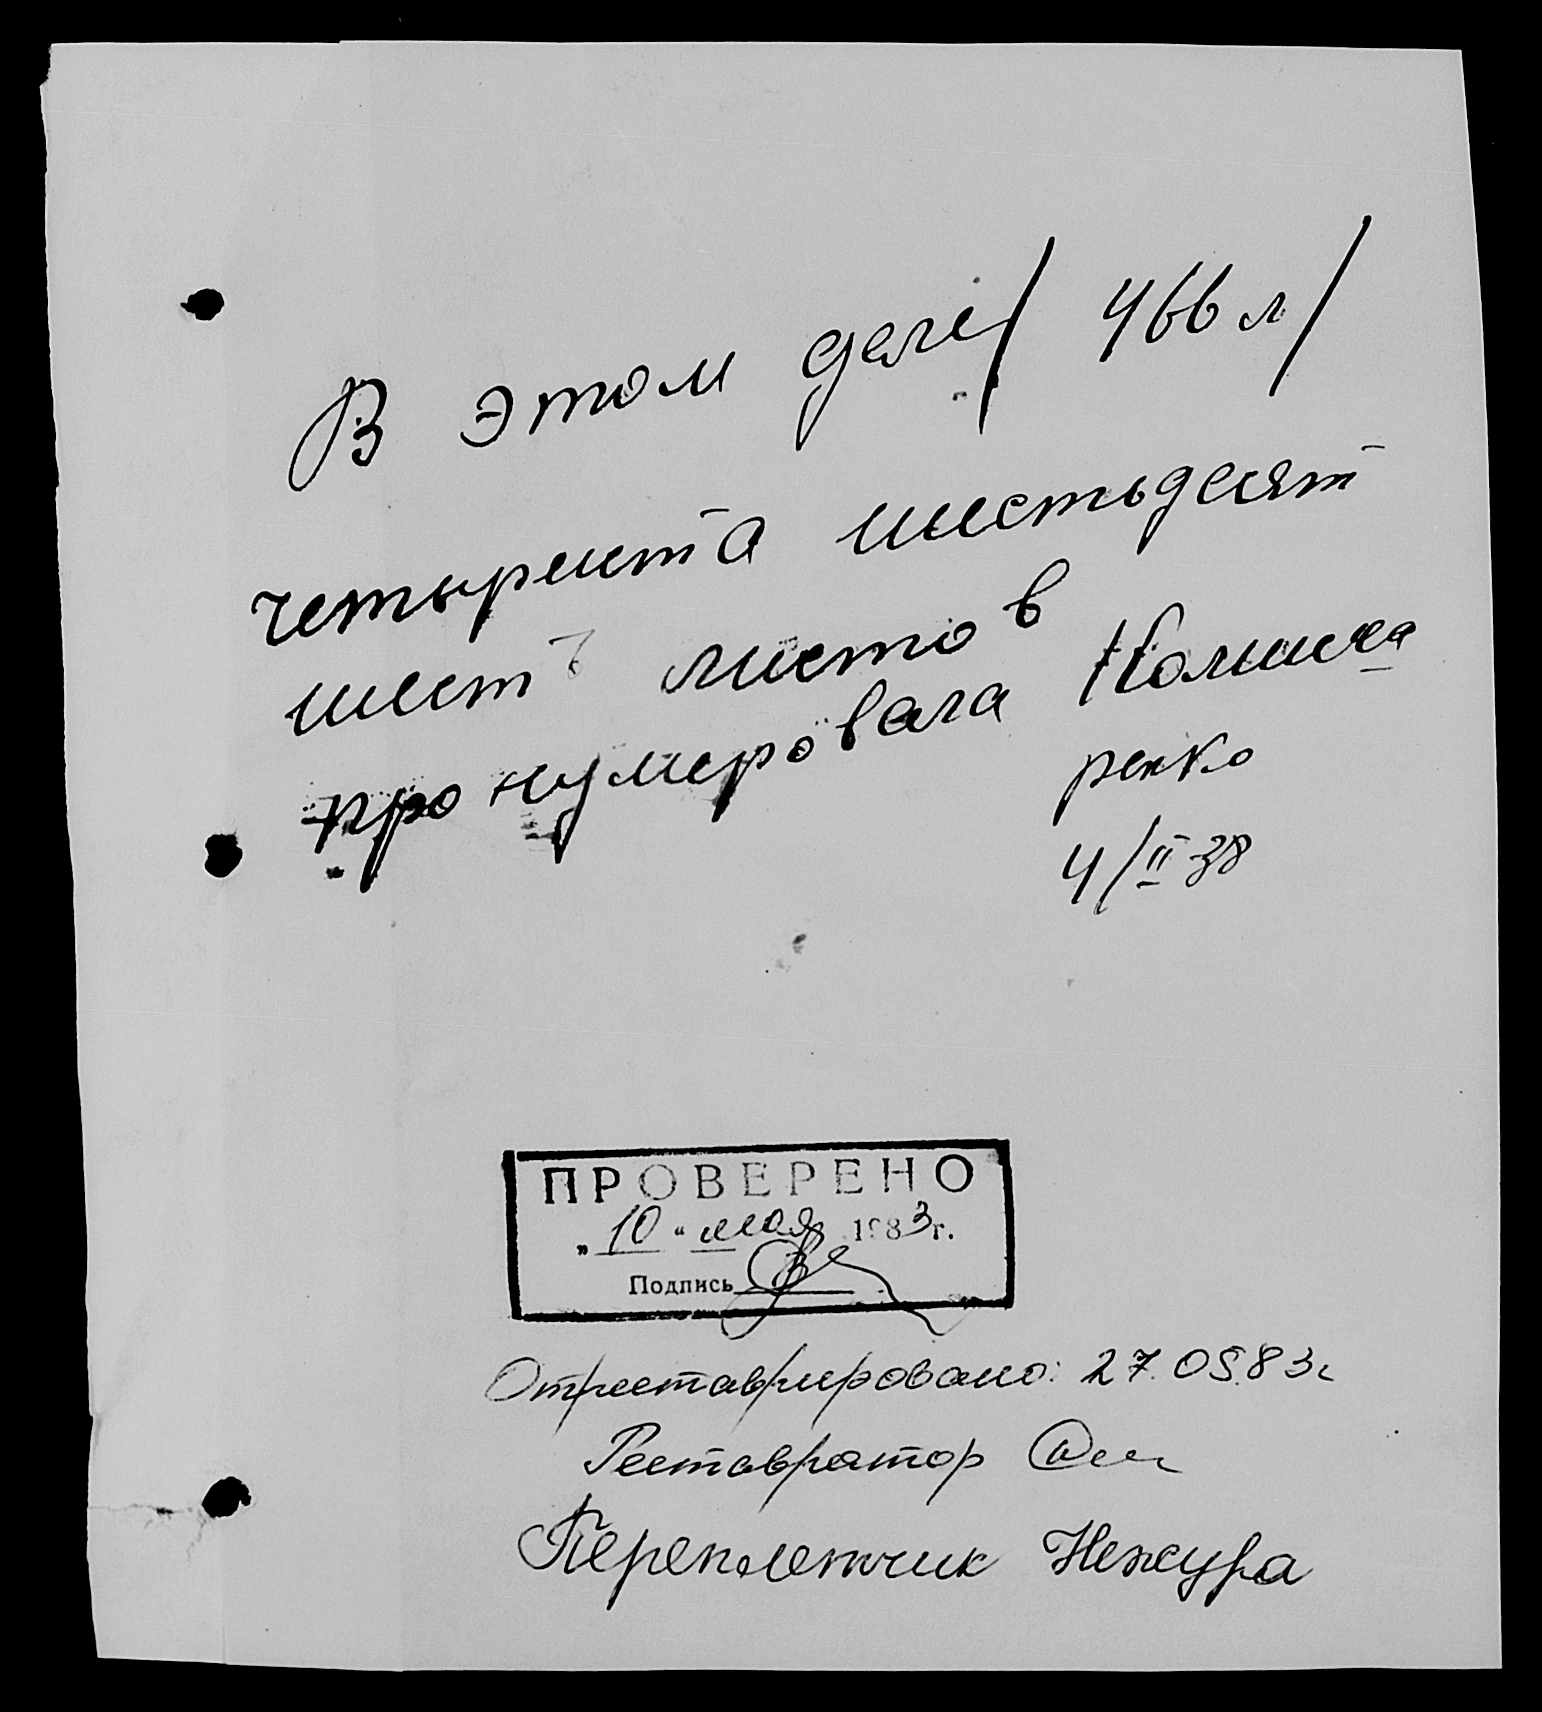 В этом деле / 466 л /
четыреста шестьдесят
шесть листов
пронумеровала
ренко
4/II 38
ПРОВЕРЕНО
„ 10 “ мая 1983 г.
Подпись
Отреставрировано: 27.05.83г
Реставратор
Переплетчик Нежура